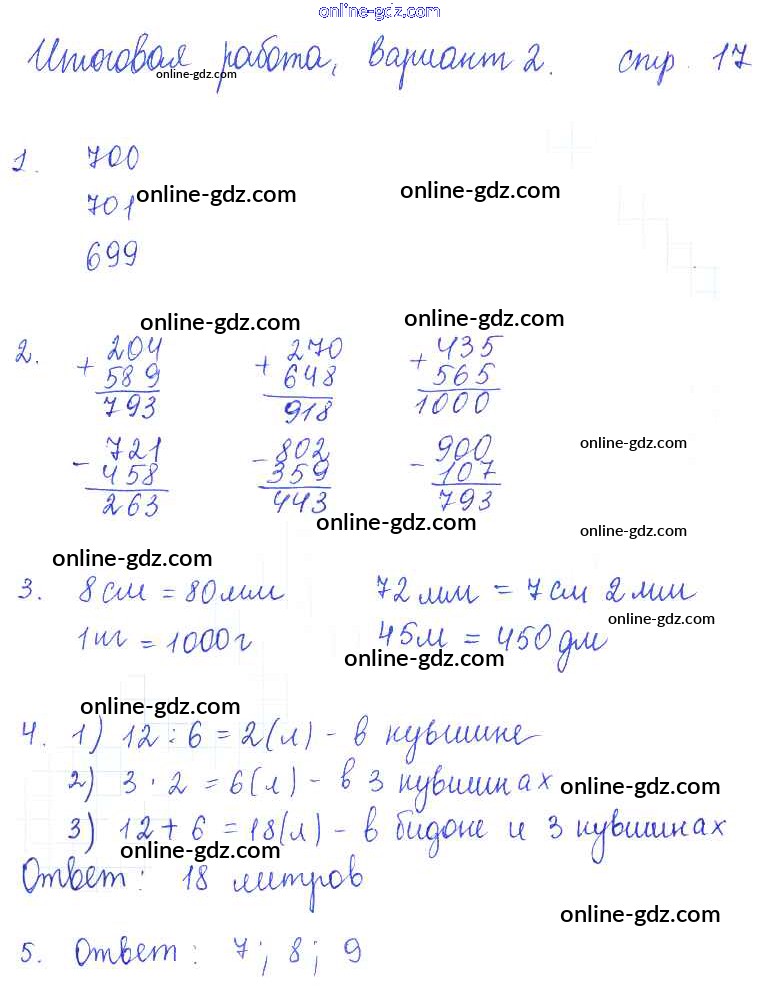 online-gdz.com
Итоговая работа, Вариант 2. стр. 17
online-gdz.com
1. 700
online-gdz.com online-gdz.com
701
online-gdz.com
699
online-gdz.com online-gdz.com
2. + 204 + 270 + 435
589 648 565
793 918 1000
online-gdz.com
- 721 - 802 - 900
458 359 107
263 443 793
online-gdz.com online-gdz.com
online-gdz.com
3. 8 см = 80 мм 72 мм = 7 см 2 мм
online-gdz.com
1 кг = 1000 г 45 м = 450 дм
online-gdz.com
online-gdz.com
4. 1) 12 : 6 = 2 (л) - в кувшине
2) 3 · 2 = 6 (л) - в 3 кувшинах
online-gdz.com
3) 12 + 6 = 18 (л) - в бидоне и 3 кувшинах
online-gdz.com
Ответ: 18 литров
online-gdz.com
5. Ответ: 7; 8; 9